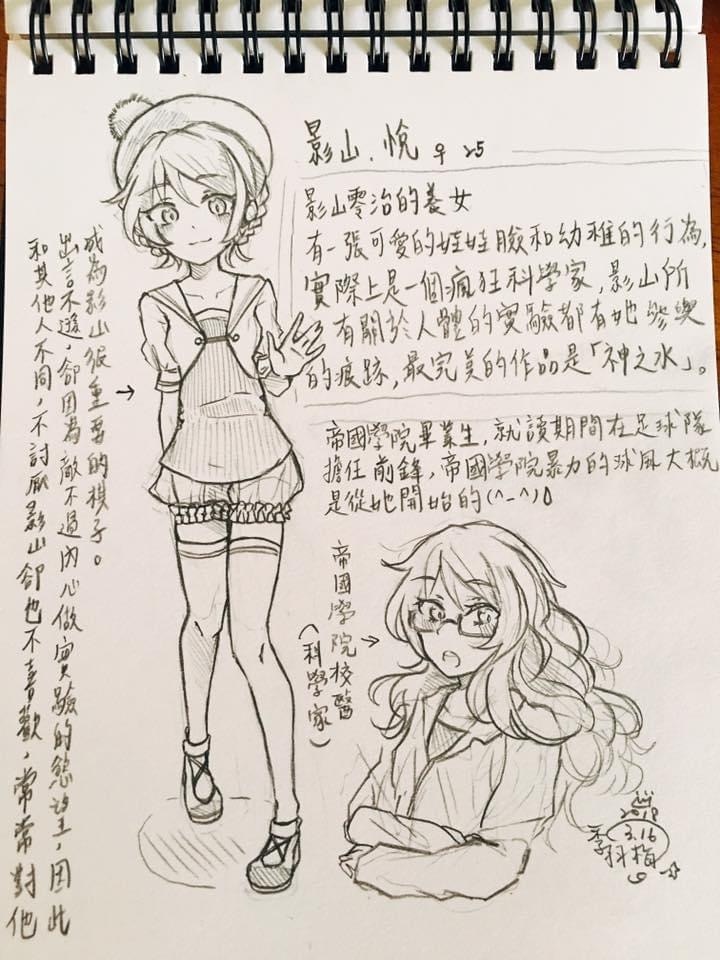 影山．悅 ♀ 25
影山零治的養女
有一張可愛的娃娃臉和幼稚的行為，
實際上是一個瘋狂科學家，影山所
有關於人體的實驗都有她參與
的痕跡，最完美的作品是「神之水」。
帝國學院畢業生，就讀期間在足球隊
擔任前鋒，帝國學院暴力的球風大概
是從她開始的(^_^)
帝國學院校醫
（科學家）
和其他人不同，不討厭影山卻也不喜歡，常常對他
出言不遜，卻因為敵不過內心做實驗的慾望，因此
成為影山很重要的棋子。
2018
3.16
季科梅